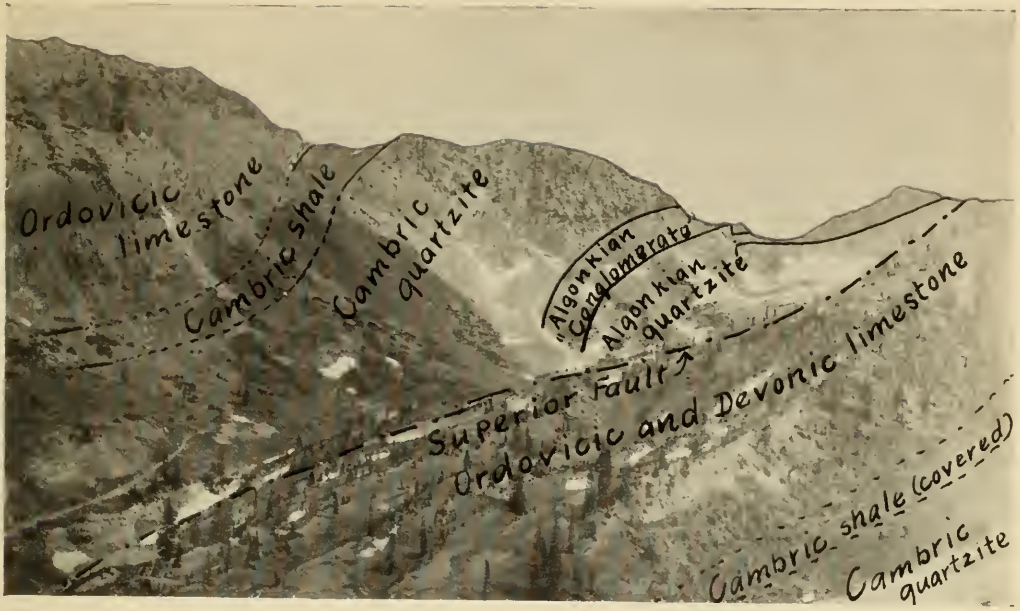 Ordovicic
limestone
Cambric shale
Cambric
quartzite
Algonkian
Conglomerate
Algonkian
quartzite
Superior Fault
Ordovicic and Devonic limestone
Cambric shale (covered)
Cambric
quartzite